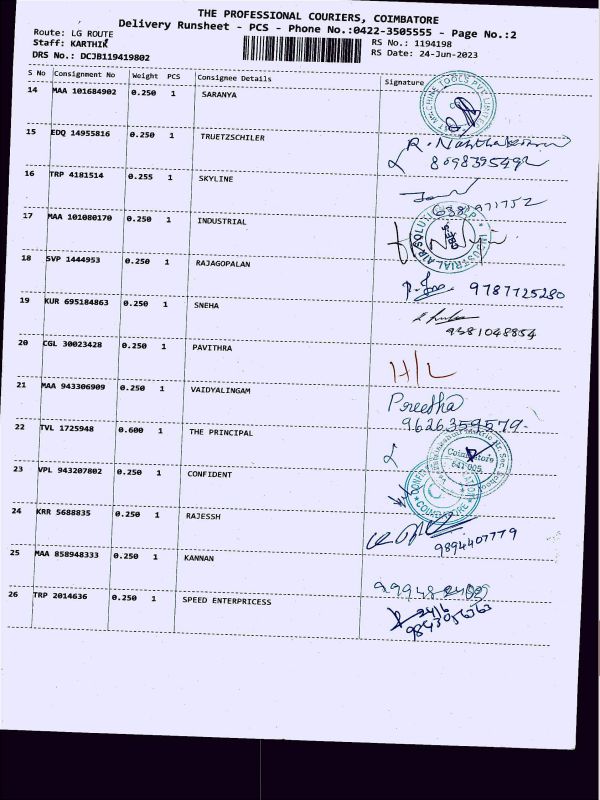 THE PROFESSIONAL COURIERS, COIMBATORE
Delivery Runsheet - PCS - Phone No.:0422-3505555 - Page No.:2
Route: LG ROUTE
Staff: KARTHIK
RS No.: 1194198
DRS No.: DCJB119419802
RS Date: 24-Jun-2023
S No Consignment No Weight PCS Consignee Details Signature
14 MAA 101684902 0.250 1 SARANYA
15 EDQ 14955816 0.250 1 TRUETZSCHILER
8098395492
16 TRP 4181514 0.255 1 SKYLINE
17 MAA 101080170 0.250 1 INDUSTRIAL
18 SVP 1444953 0.250 1 RAJAGOPALAN
9787725280
19 KUR 695184863 0.250 1 SNEHA
9381048854
20 CGL 30023428 0.250 1 PAVITHRA
H/L
21 MAA 943306909 0.250 1 VAIDYALINGAM
Preetha
9626359579
22 TVL 1725948 0.600 1 THE PRINCIPAL
Coimbatore
641 005
23 VPL 943207802 0.250 1 CONFIDENT
24 KRR 5688835 0.250 1 RAJESSH
9894407779
25 MAA 858948333 0.250 1 KANNAN
26 TRP 2014636 0.250 1 SPEED ENTERPRICESS